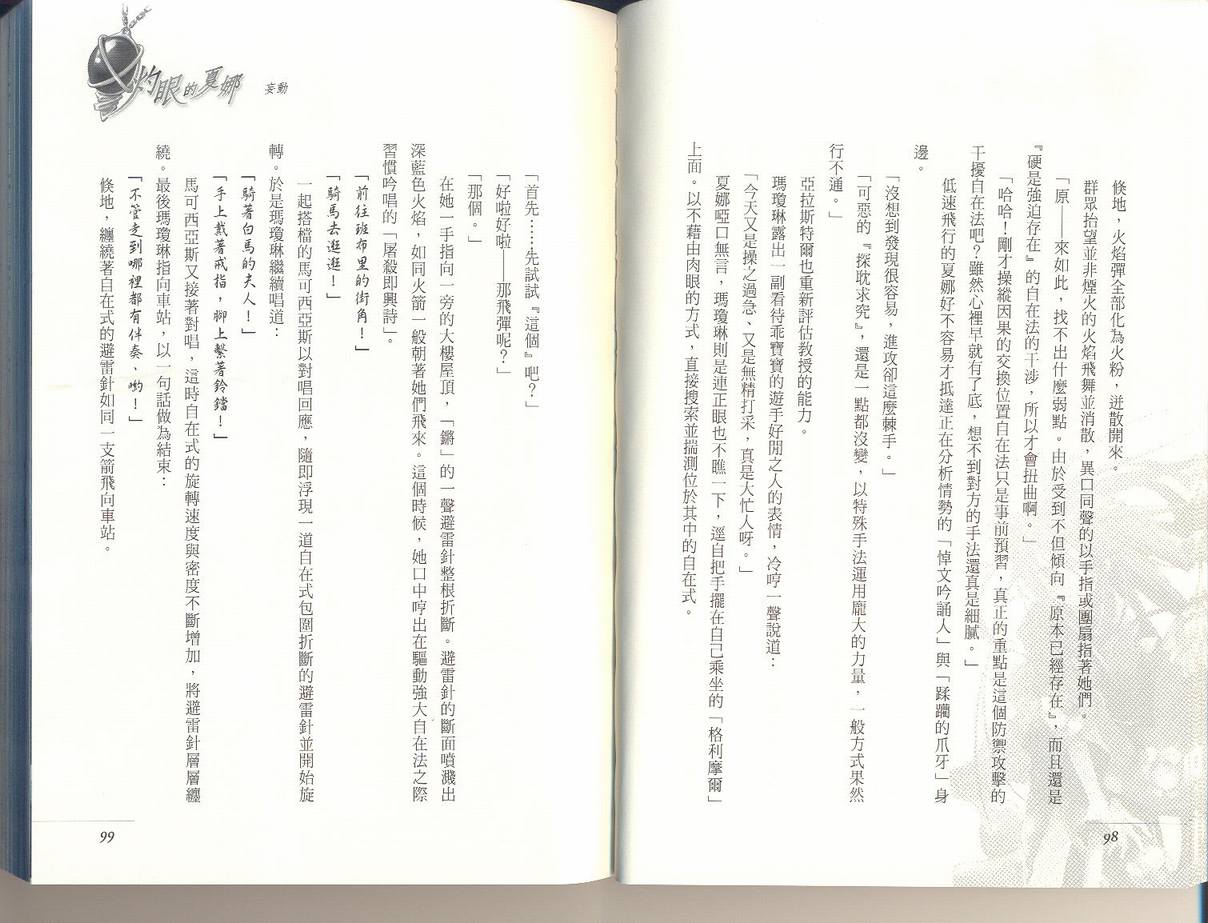 倏地，火焰彈全部化為火粉，迸散開來。
群眾抬望並非煙火的火焰飛舞並消散，異口同聲的以手指或團扇指著她們。
「原——來如此，找不出什麼弱點。由於受到不但傾向『原本已經存在』，而且還是
『硬是強迫存在』的自在法的干涉，所以才會扭曲啊。」
「哈哈！剛才操縱因果的交換位置自在法只是事前預習，真正的重點是這個防禦攻擊的
干擾自在法吧？雖然心裡早就有了底，想不到對方的手法還真是細膩。」
低速飛行的夏娜好不容易才抵達正在分析情勢的「悼文吟誦人」與「蹂躪的爪牙」身
邊。
「沒想到發現很容易，進攻卻這麼棘手。」
「可惡的『探耽求究』，還是一點都沒變，以特殊手法運用龐大的力量，一般方式果然
行不通。」
亞拉斯特爾也重新評估教授的能力。
瑪瓊琳露出一副看待乖寶寶的遊手好閒之人的表情，冷哼一聲說道：
「今天又是操之過急、又是無精打采，真是大忙人呀。」
夏娜啞口無言，瑪瓊琳則是連正眼也不瞧一下，逕自把手擺在自己乘坐的「格利摩爾」
上面。以不藉由肉眼的方式，直接搜索並揣測位於其中的自在式。
98
灼眼的夏娜 妄動
「首先……先試試『這個』吧？」
「好啦好啦——那飛彈呢？」
「那個。」
在她一手指向一旁的大樓屋頂，「鏘」的一聲避雷針整根折斷。避雷針的斷面噴濺出
深藍色火焰，如同火箭一般朝著她們飛來。這個時候，她口中哼出在驅動強大自在法之際
習慣吟唱的「屠殺即興詩」。
「前往班布里的街角！」
「騎馬去逛逛！」
一起搭檔的馬可西亞斯以對唱回應，隨即浮現一道自在式包圍折斷的避雷針並開始旋
轉。於是瑪瓊琳繼續唱道：
「騎著白馬的夫人！」
「手上戴著戒指，腳上繫著鈴鐺！」
馬可西亞斯又接著對唱，這時自在式的旋轉速度與密度不斷增加，將避雷針層層纏
繞。最後瑪瓊琳指向車站，以一句話做為結束：
「不管走到哪裡都有伴奏、喲！」
倏地，纏繞著自在式的避雷針如同一支箭飛向車站。
99